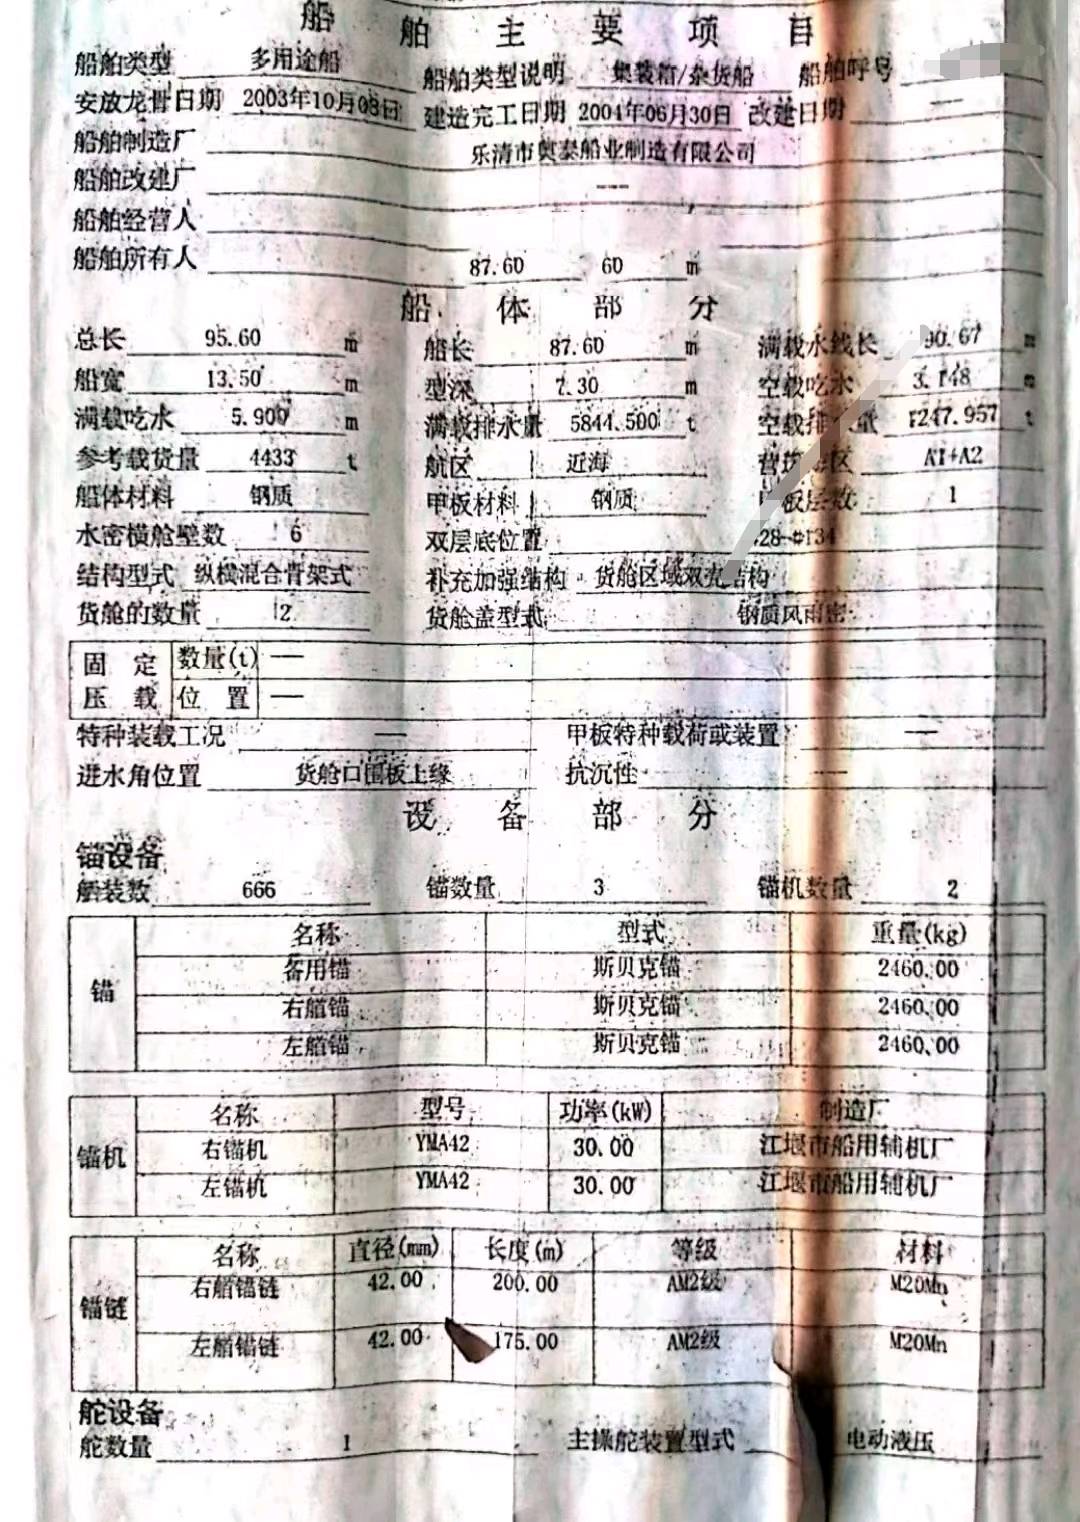 船舶主要项目
船舶类型 多用途船 船舶类型说明 集装箱/杂货船 船舶呼号
安放龙骨日期 2003年10月08日 建造完工日期 2004年06月30日 改建日期 —
船舶制造厂 乐清市奥泰船业制造有限公司
船舶改建厂 ---
船舶经营人
船舶所有人
87.60 60 m
船体部分
总长 95.60 m 船长 87.60 m 满载水线长 90.67 m
船宽 13.50 m 型深 7.30 m 空载吃水 3.148 m
满载吃水 5.900 m 满载排水量 5844.500 t 空载排水量 247.957 t
参考载货量 4433 t 航区 近海 区 A1+A2
船体材料 钢质 甲板材料 钢质 甲板层数 1
水密横舱壁数 6 双层底位置 28-#134
结构型式 纵横混合骨架式 补充加强结构 货舱区域双壳结构
货舱的数量 2 货舱盖型式 钢质风雨密
固定 数量(t) —
压载 位置 —
特种装载工况 — 甲板特种载荷或装置 —
进水角位置 货舱口围板上缘 抗沉性 —
设备部分
锚设备
舾装数 666 锚数量 3 锚机数量 2
锚
名称 型式 重量(kg)
备用锚 斯贝克锚 2460.00
右艏锚 斯贝克锚 2460.00
左艏锚 斯贝克锚 2460.00
锚机
名称 型号 功率(kW) 制造厂
右锚机 YMA42 30.00 江堰市船用辅机厂
左锚机 YMA42 30.00 江堰市船用辅机厂
锚链
名称 直径(mm) 长度(m) 等级 材料
右艏锚链 42.00 200.00 AM2级 M20Mn
左艏锚链 42.00 175.00 AM2级 M20Mn
舵设备
舵数量 1 主操舵装置型式 电动液压